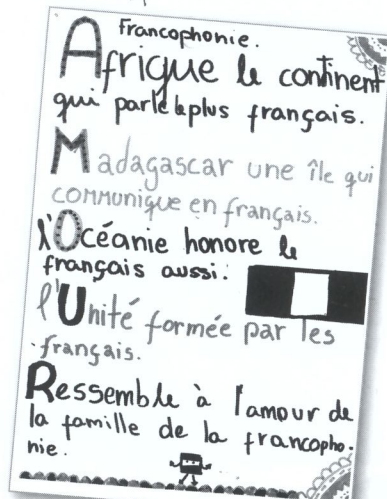 Francophonie.
Afrique le continent
qui parle le plus français.
Madagascar une île qui
communique en français.
l'Océanie honore le
français aussi.
l'Unité formée par les
français.
Ressemble à l'amour de
la famille de la francopho-
nie.